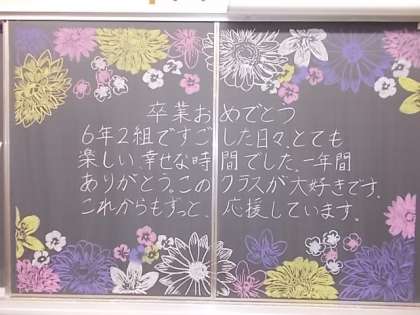 卒業おめでとう
6年2組ですごした日々、とても
楽しい、幸せな時間でした。一年間
ありがとう。このクラスが大好きです。
これからもずっと、応援しています。